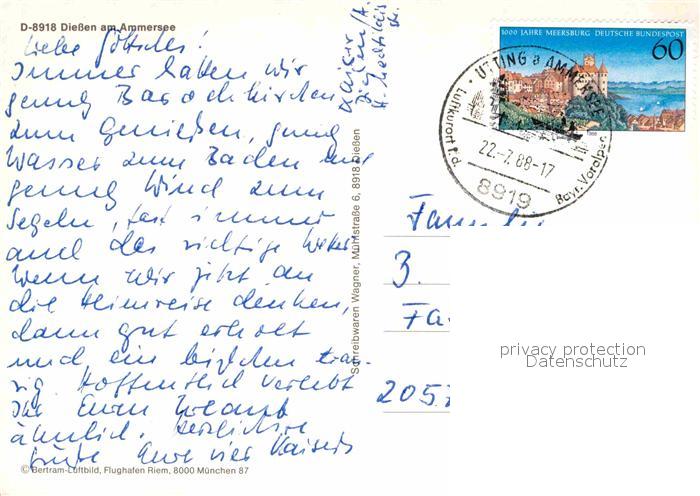 D-8918 Dießen am Ammersee
Liebe Göttsches!
Immer hatten wir
genug Barockkirchen
zum Genießen, genug
Wasser zum Baden und
genug Wind zum
Segeln, fast immer
auch das richtige Wetter.
Wenn wir jetzt an
die Heimreise denken,
dann gut erholt
und ein bißchen trau-
rig. Hoffentlich verlebt
Ihr Euren Urlaub
ähnlich. Herzliche
Grüße Eure vier Kaisers
© Bertram-Luftbild, Flughafen Riem, 8000 München 87
Kaiser
str.
Schreibwaren Wagner, Mühlstraße 6, 8918 Dießen
1000 JAHRE MEERSBURG DEUTSCHE BUNDESPOST
60
1988
UTTING a AMMERSEE
22.-7.88-17
8919
Luftkurort i. d.
Bayr. Voralpen
Familie
3.
Fa
205
privacy protection
Datenschutz